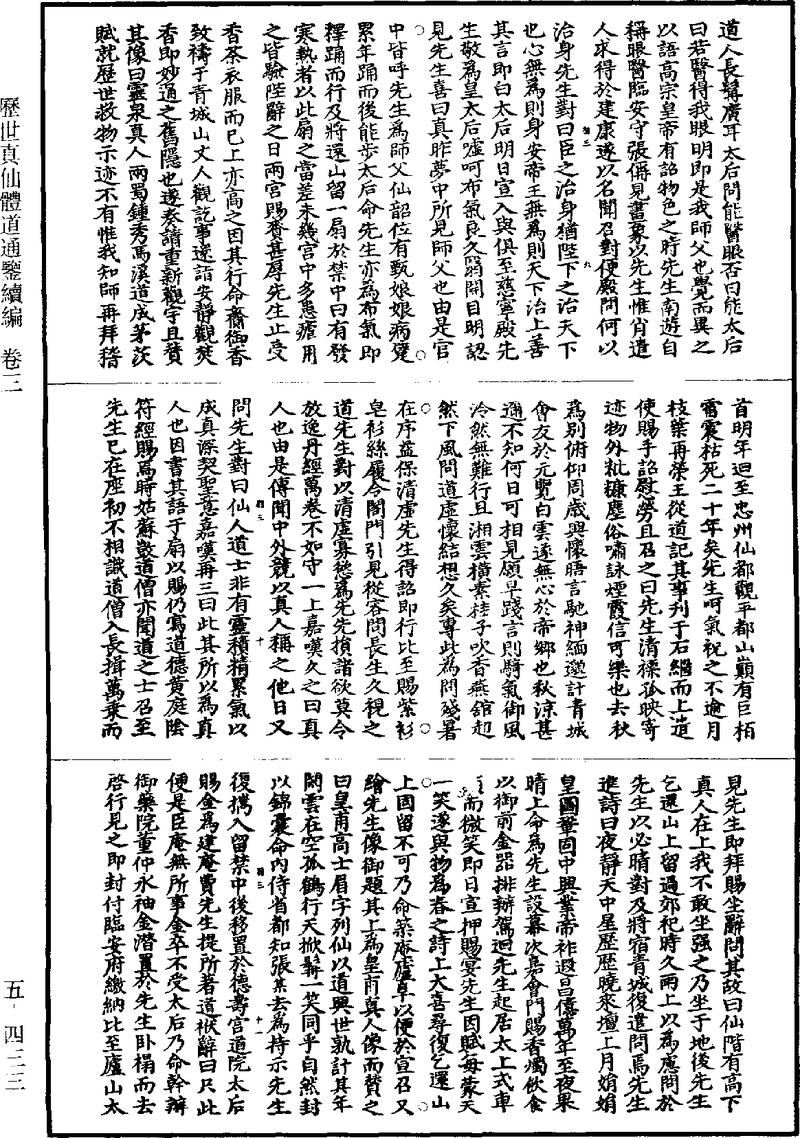 道人長髯廣耳太后問能醫眼否曰能太后
曰若醫得我眼明即是我師父也覺而異之
以語高宗皇帝有詔物色之時先生南遊自
稱眼醫臨安守張偁見畫象以先生惟肖遣
人求得於建康遂以名聞召對便殿問何以
治身先生對曰臣之治身猶陛下之治天下
也心無為則身安帝王無為則天下治上善
其言即白太后明日宣入與俱至慈寧殿先
生敬為皇太后噓呵布氣良久翳開目明認
見先生喜曰真昨夢中所見師父也由是宮
中皆呼先生為師父仙韶位有甄娘娘病躄
累年踊而後能步太后命先生亦為布氣即
釋踊而行及將還山留一扇於禁中曰有發
寒熱者以此扇之當差未幾宮中多患瘧用
之皆驗陛辭之日兩宮賜賚甚厚先生止受
香茶衣服而已上亦高之因其行命齎御香
致禱于青城山丈人觀訖事遂詣安靜觀焚
香即妙通之舊隱也遂奏請重新觀宇且贊
其像曰靈泉真人兩蜀鍾秀馬溪道成茅茨
賦就歷世救物示迹不有惟我知師再拜稽
首明年迴至忠州仙都觀平都山巔有巨栢
雷震枯死二十年矣先生呵氣祝之不逾月
枝葉再榮王從道記其事刋于石繼而上遣
使賜手詔慰勞且召之曰先生清標孤映寄
迹物外粃糠塵俗嘯詠煙霞信可樂也去秋
為別俯仰周歲興懷晤言馳神緬邈計青城
會友於元覽白雲遂無心於帝鄉也秋涼甚
邇不知何日可相見願早踐言則騎氣御風
泠然無難行且湘雲橫素桂子吹香燕舘超
然下風問道虛懷結想久矣專此為問殘暑
在序益保清虛先生得詔即行比至賜紫衫
皂衫絲履令閤門引見從容問長生久視之
道先生對以清虛寡慾為先先捐諸欲莫令
放逸丹經萬卷不如守一上嘉嘆久之曰真
人也由是傳聞中外競以真人稱之他日又
問先生對曰仙人道士非有靈積精累氣以
成真深契聖意嘉嘆再三曰此其所以為真
人也因書其語于扇以賜仍寫道德黃庭陰
符經賜焉時姑蘇蓑道僧亦聞道之士召至
先生已在座初不相識道僧入長揖萬乘而
見先生即拜賜坐辭問其故曰仙階有高下
真人在上我不敢坐强之乃坐于地後先生
乞還山上留過郊祀時久雨上以為慮問於
先生以必晴對及將宿青城復遣問焉先生
進詩曰夜靜天中星歷歷曉來壇上月娟娟
皇圖鞏固中興業帝祚遐昌億萬年至夜果
晴上命為先生設幕次嘉會門賜香燭飲食
以御前金器排辦駕迴先生起居太上式車
而微笑即日宣押賜宴先生因賦每蒙天
一笑遂與物為春之詩上大喜尋復乞還山
上固留不可乃命築庵廬阜以便於宣召又
繪先生像御題其上為皇甫真人像而贊之
曰皇甫高士眉宇列仙以道興世孰計其年
閑雲在空孤鶴行天掀髯一笑同乎自然封
以錦囊命內侍省都知張某去為持示先生
復攜入留禁中後移置於德壽宮道院太后
賜金為建庵費先生提所著道楸辭曰只此
便是臣庵無所事金卒不受太后乃命幹辦
御藥院董仲永袖金潛置於先生臥榻而去
啓行見之即封付臨安府繳納比至廬山太
歷世真仙體道通鑒續編 卷三
五 - 四三三